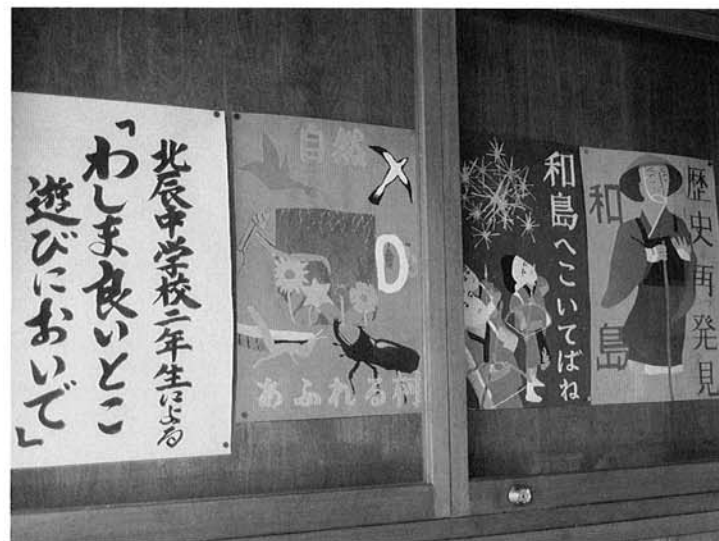 北辰中学校二年生による
「わしま良いとこ
遊びにおいで」
自然
あふれる村
和島へこいてばね
歴史再発見
和島